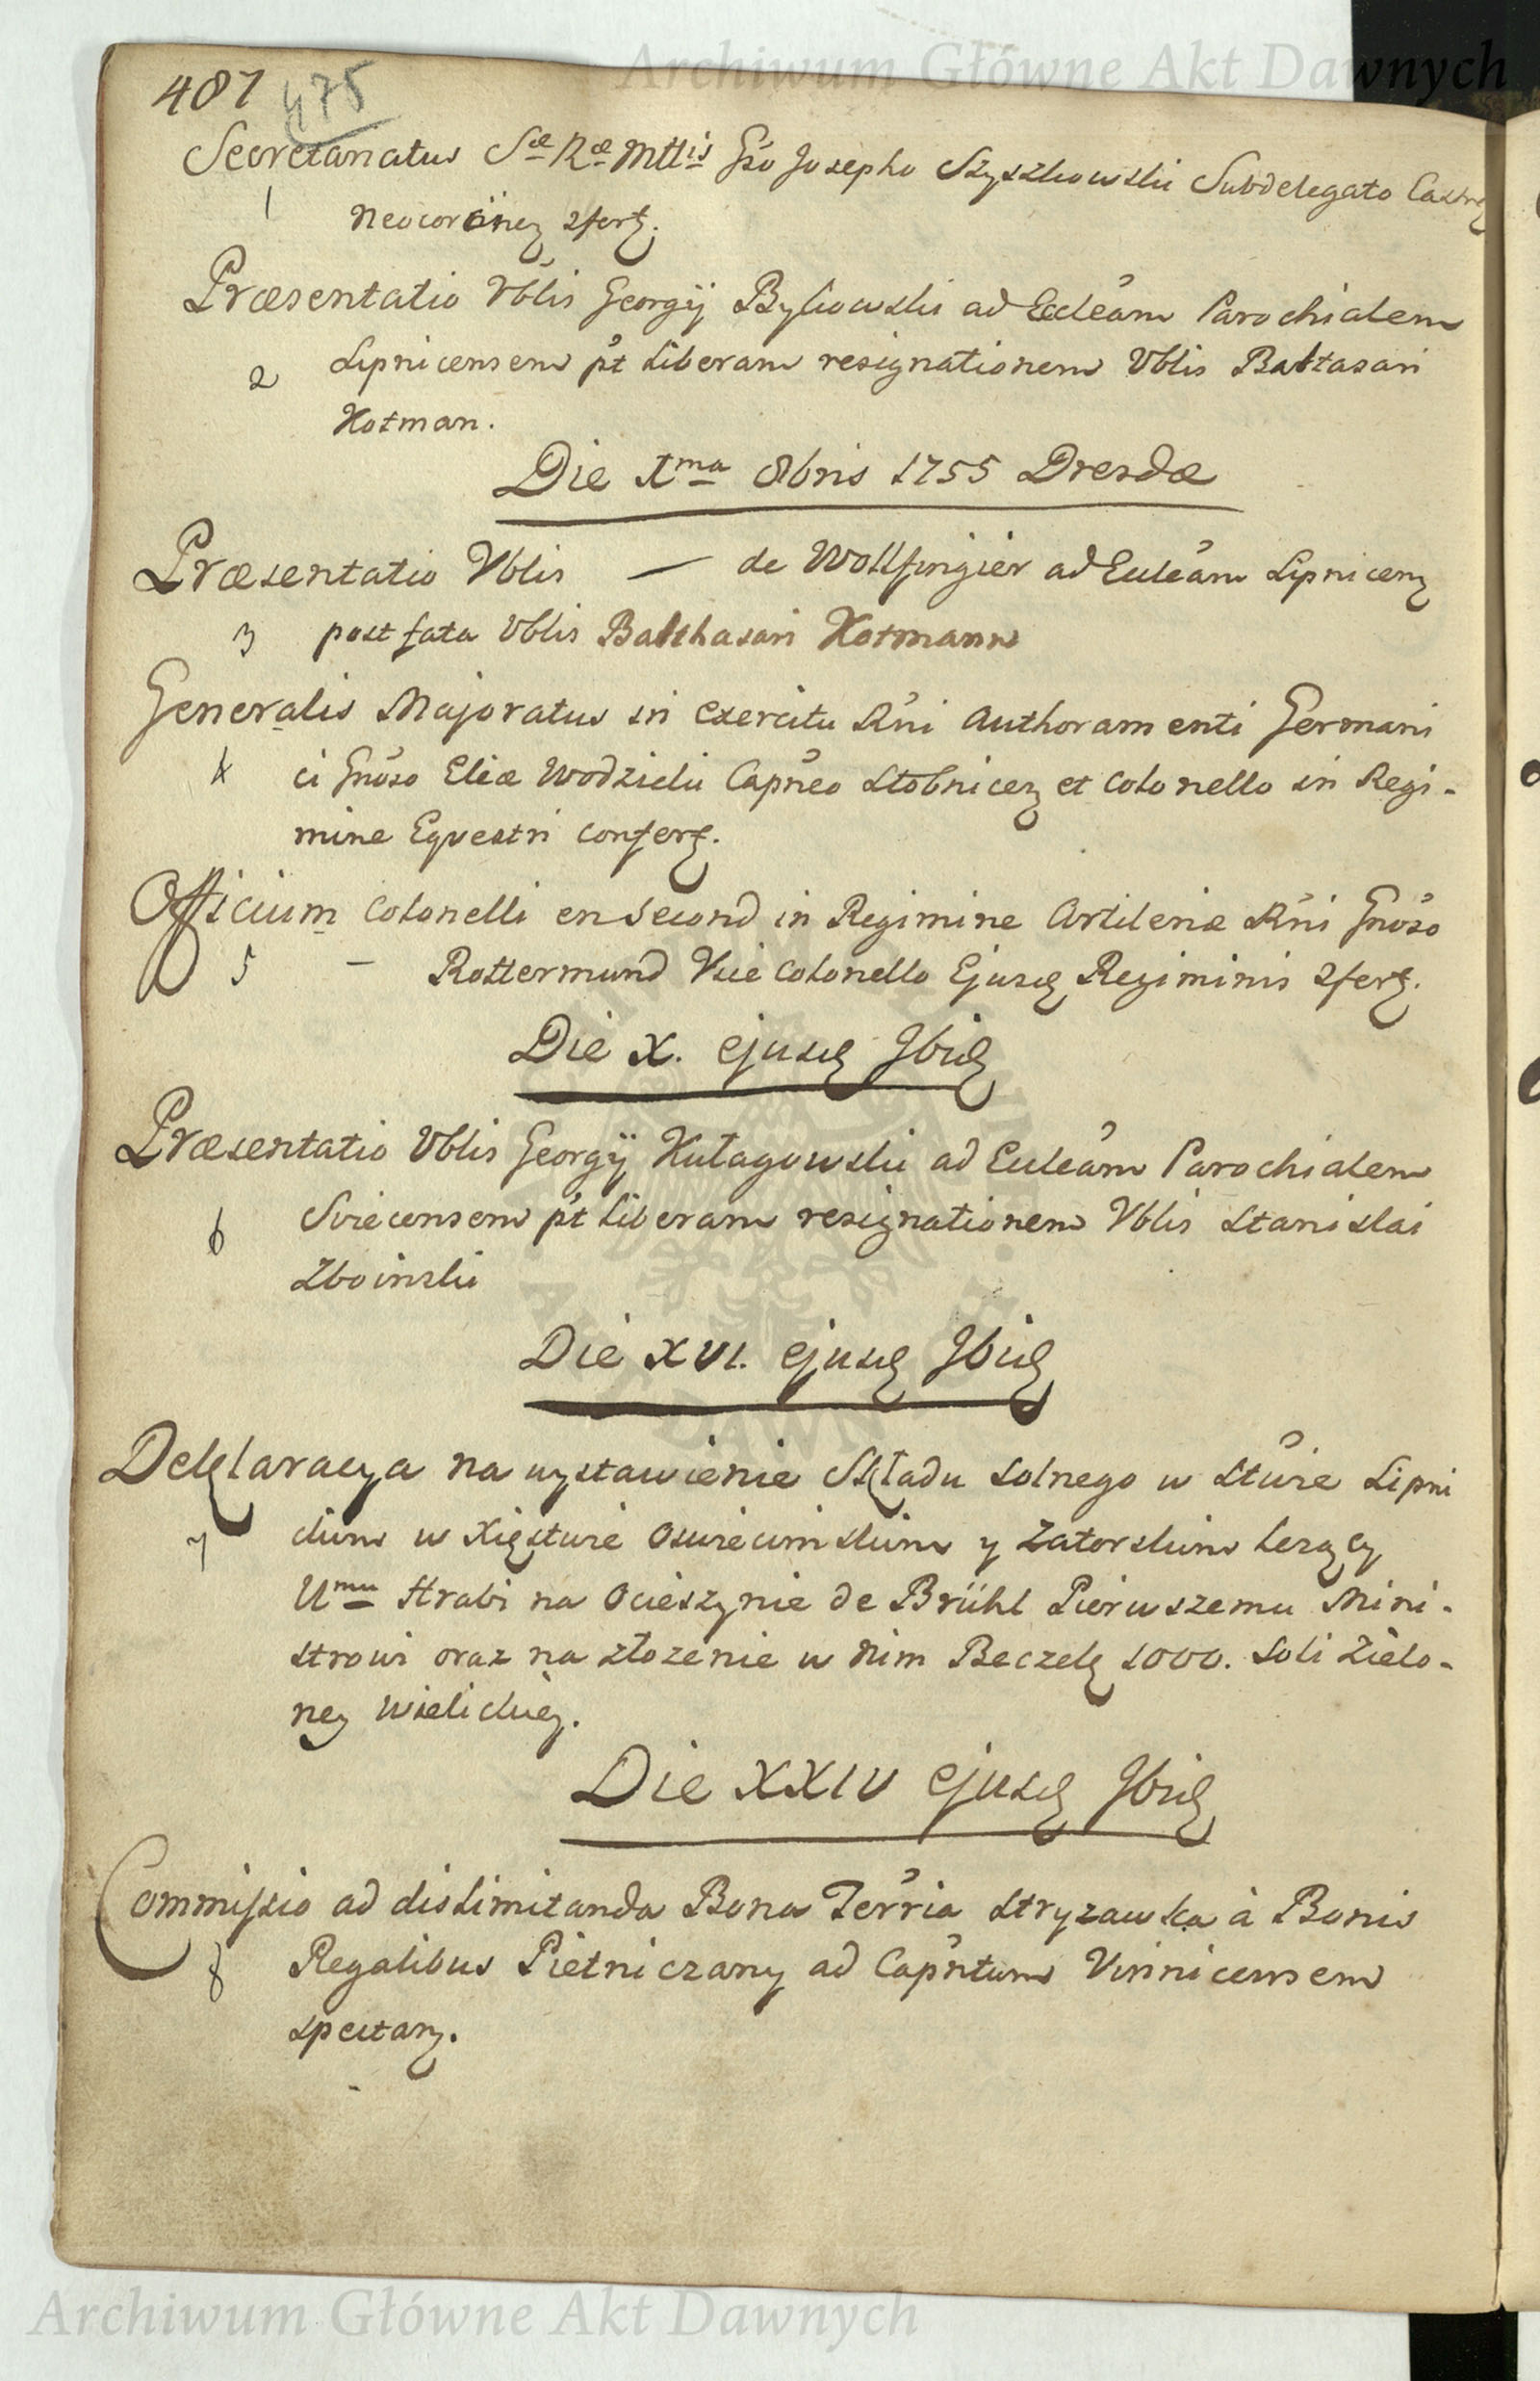 Archiwum Główne Akt Dawnych
487 475
Secretariatus Sæ Ræ Mttis Gso Josepho Szyszkowski Subdelegato Castr
1 Neocorcinen
Præsentatio Vblis Georgÿ Bykowski ad Eccleam Parochialem
2 Lipnicensem pt liberam resignationem Vblis Baltasari
Hotman.
Die Xma 8bris 1755 Dresdæ
Præsentatio Vblis — de Wollfingier ad Eccleam Lipnicen
3 post fata Vblis Balthasari Hotmann
Generalis Majoratus in exercitu Rni Authoramenti Germani
4 ci Gnoso Eliæ Wodzicki Capneo Stobnicen et Colonello in Regi-
mine Equestri confert.
Officium Colonelli en second in Regimine Artileriæ Rni Gnoso
5 — Rottermund Vice Colonello Ejusd Regiminis 2fert.
Die X. ejusd Ibid
Præsentatio Vblis Georgÿ Kułagowski ad Eccleam Parochialem
6 Sviecensem pt liberam resignationem Vblis Stanislai
Zboinski
Die XVI. ejusd Ibid
Deklaracya na wystawienie Składu Solnego w Stwie Lipni
7 ckim w Xięstwie Oswiecimskim y Zatorskim lezący
Umu Hrabi na Ocieszynie de Brühl Pierwszemu Mini-
strowi oraz na złozenie w nim Beczek 1000. Soli Zielo-
ney Wielickiey.
Die XXIV ejusd Ibid
Commissio ad dislimitanda Bona Terria Stryzawka à Bonis
8 Regalibus Pietniczany ad Capntum Vinnicensem
spectan.
Archiwum Główne Akt Dawnych